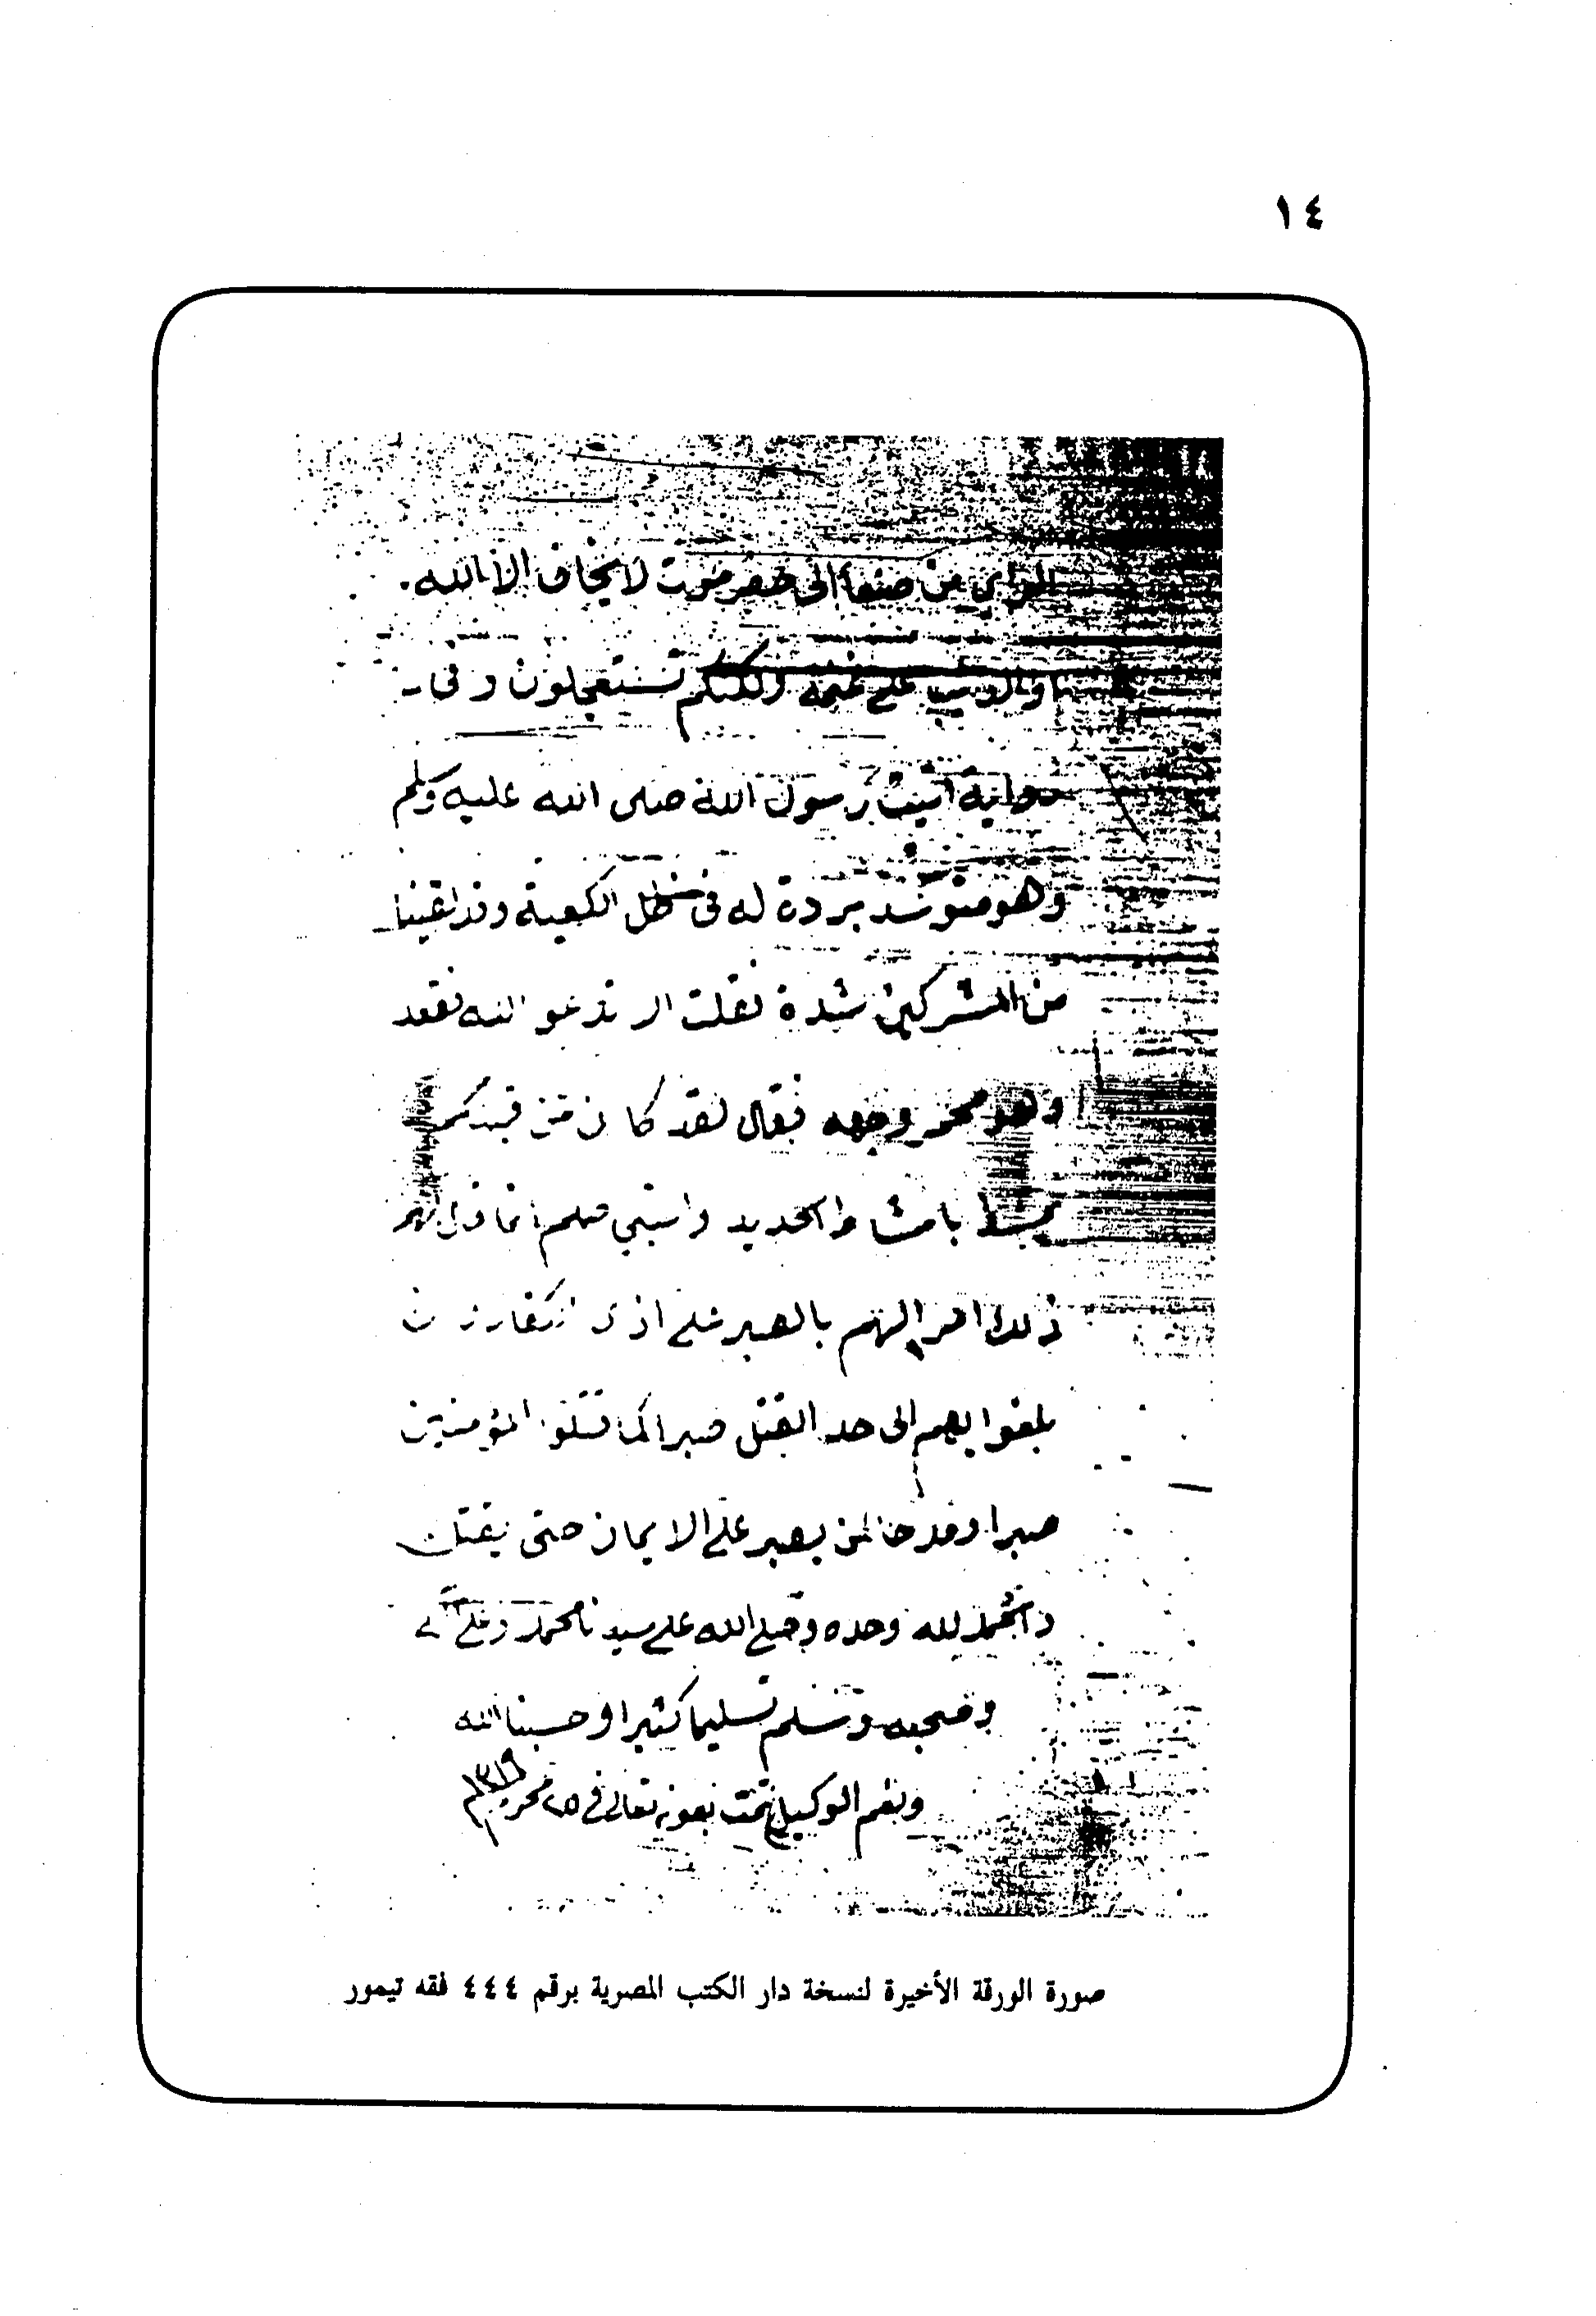 ١٤
الراكب من صنعاء الى حضرموت لا يخاف الا الله
والذئب على غنمه ولكنكم تستعجلون وفى
رواية اتيت رسول الله صلى الله عليه وسلم
وهو متوسد بردة له فى ظل الكعبة وقد لقينا
من المشركين شدة فقلت الا تدعو الله فقعد
وهو محمر وجهه فقال لقد كان من قبلكم
يمشط بامشاط الحديد
ذلك امر الهم بالصبر على اذى الكفار وان
بلغوا بهم الى حد القتل صبرا كما قتلوا المؤمنين
صبرا ومدحا لمن يصبر على الايمان حتى يقتل
والحمد لله وحده وصلى الله على سيدنا محمد وعلى آله
وصحبه وسلم تسليما كثيرا وحسبنا الله
ونعم الوكيل تمت بعونه تعالى فى ٢٥ محرم ١٣١٩
صورة الورقة الأخيرة لنسخة دار الكتب المصرية برقم ٤٤٤ فقه تيمور